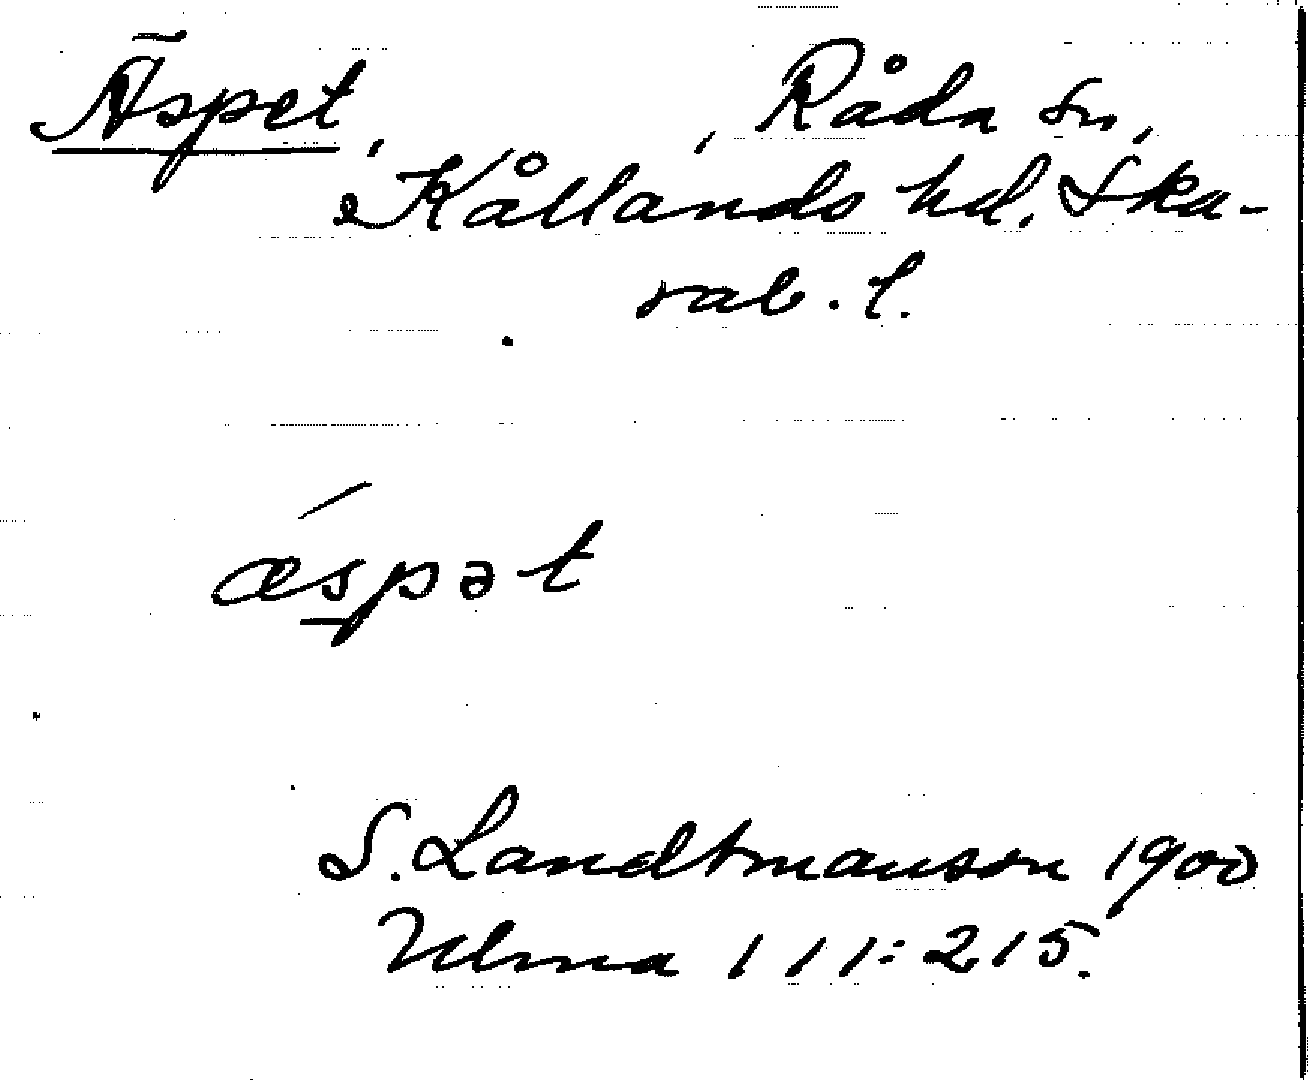 Äspet, , Råda sn,
Kållands hd. Ska-
rab. l.
ǽspət
S. Landtmanson 1900
Ulma 111:215.